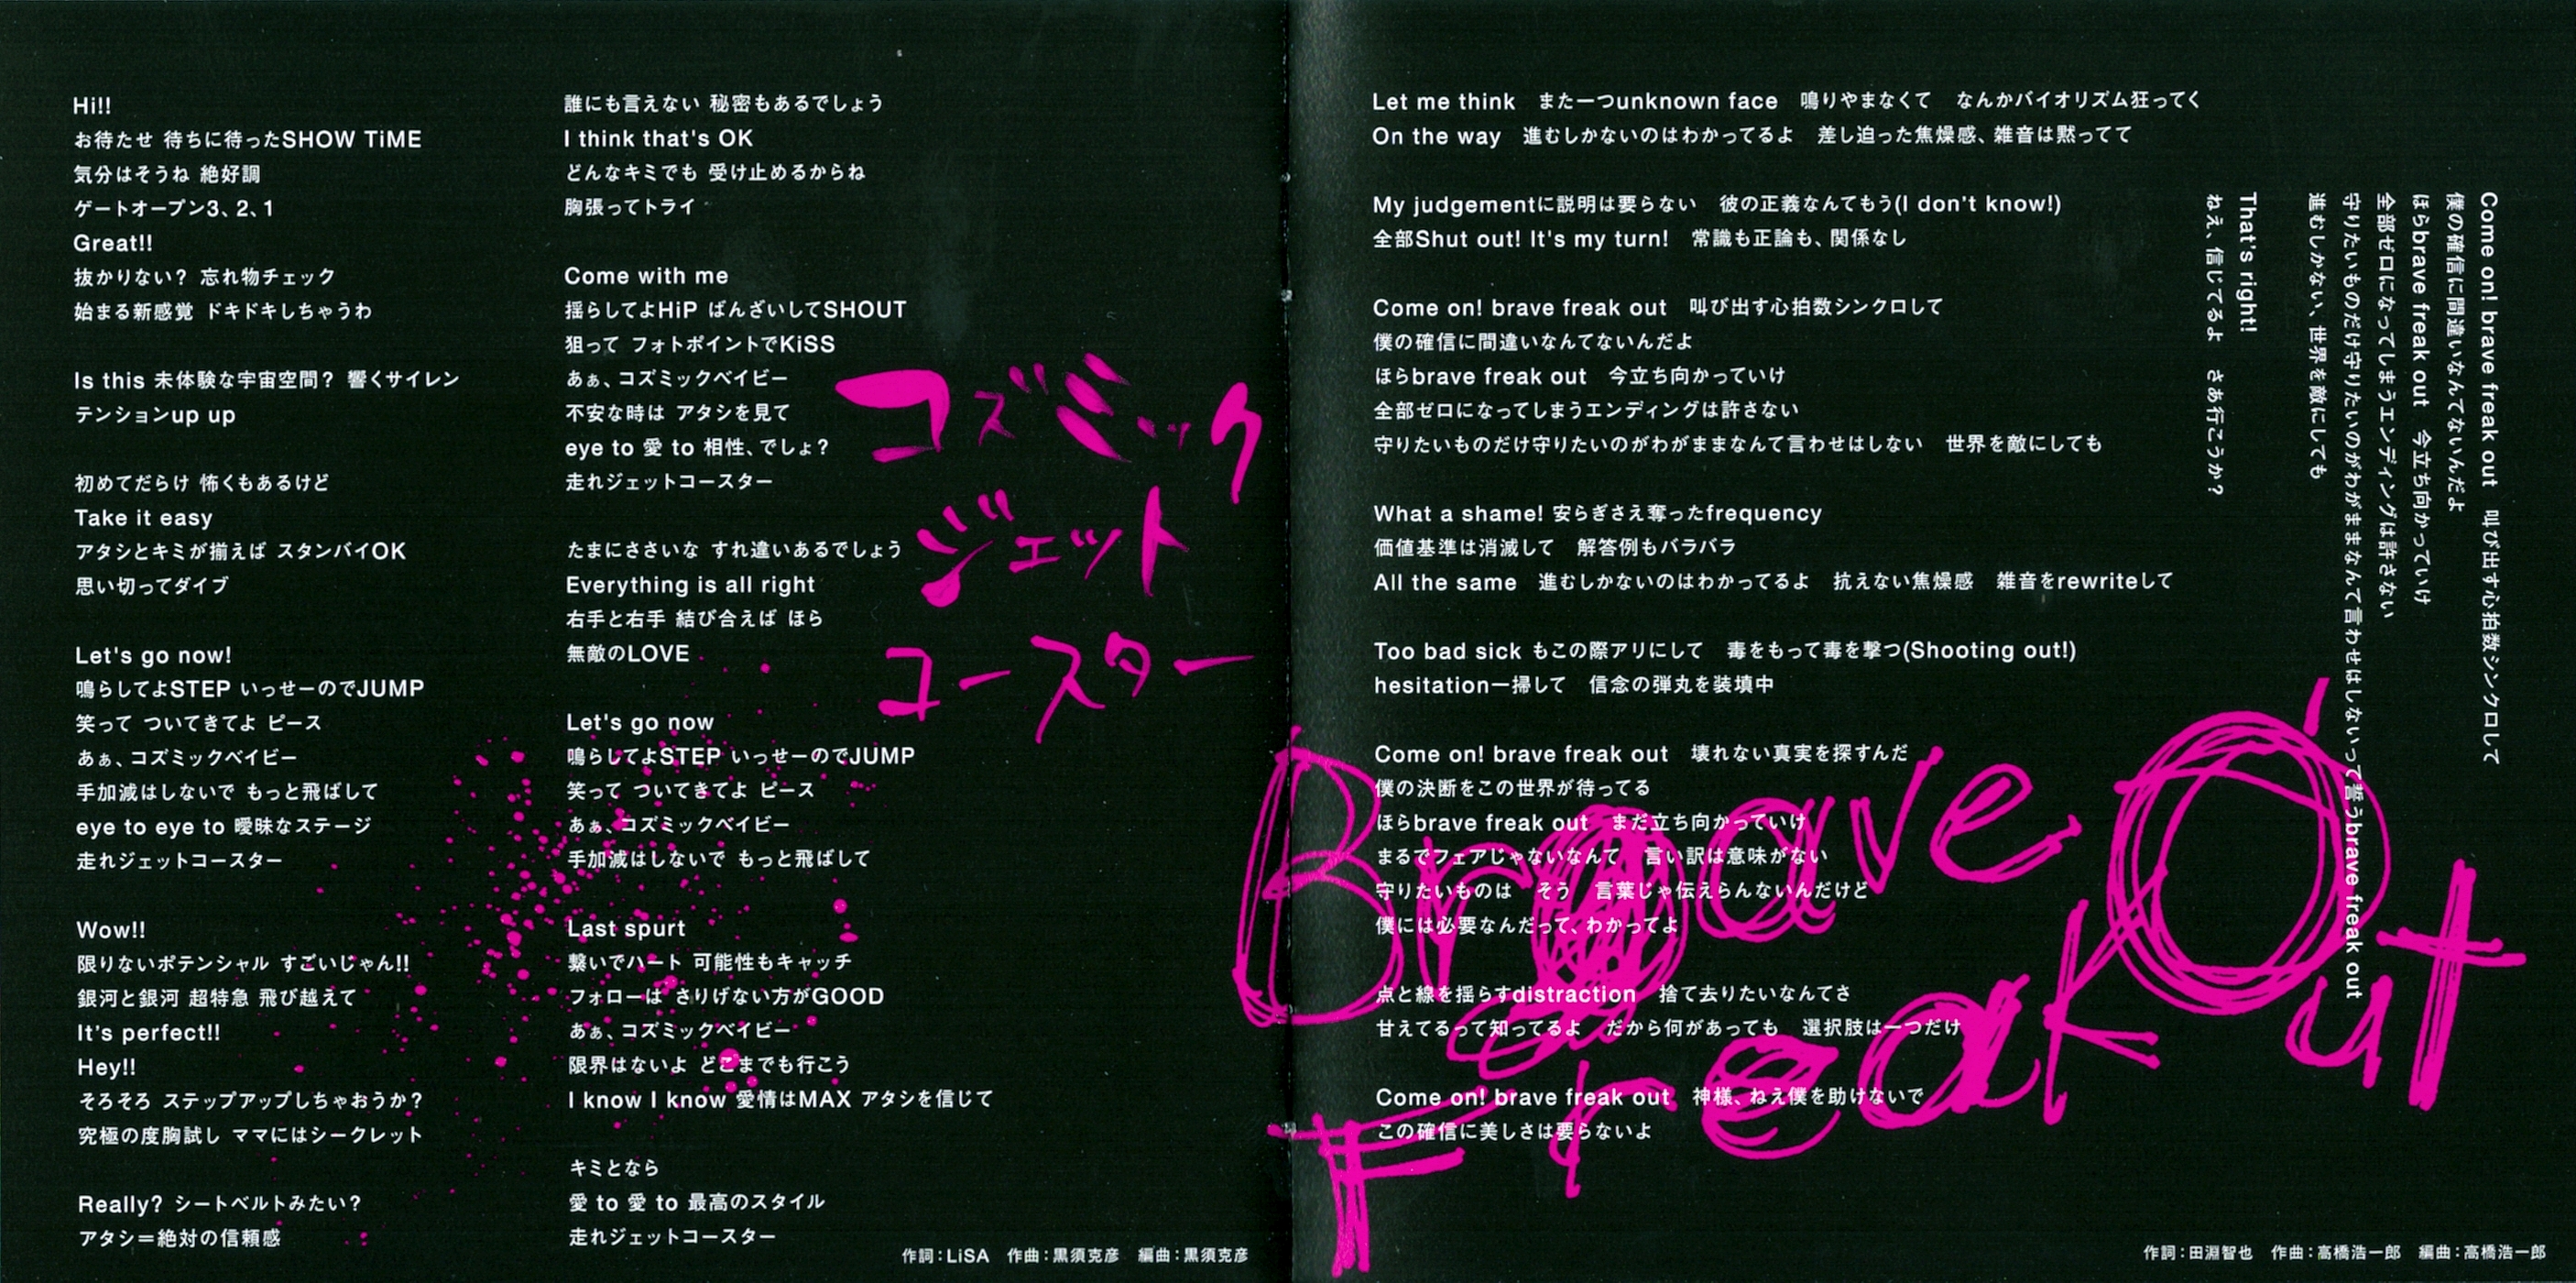 Hi!!
お待たせ 待ちに待ったSHOW TiME
気分はそうね 絶好調
ゲートオープン3、2、1
Great!!
抜かりない? 忘れ物チェック
始まる新感覚 ドキドキしちゃうわ
Is this 未体験な宇宙空間? 響くサイレン
テンションup up
初めてだらけ 怖くもあるけど
Take it easy
アタシとキミが揃えば スタンバイOK
思い切ってダイブ
Let's go now!
鳴らしてよSTEP いっせーのでJUMP
笑って ついてきてよ ピース
あぁ、コズミックベイビー
手加減はしないで もっと飛ばして
eye to eye to 曖昧なステージ
走れジェットコースター
Wow!!
限りないポテンシャル すごいじゃん!!
銀河と銀河 超特急 飛び越えて
It's perfect!!
Hey!!
そろそろ ステップアップしちゃおうか?
究極の度胸試し ママにはシークレット
Really? シートベルトみたい?
アタシ＝絶対の信頼感
誰にも言えない 秘密もあるでしょう
I think that's OK
どんなキミでも 受け止めるからね
胸張ってトライ
Come with me
揺らしてよHiP ばんざいしてSHOUT
狙って フォトポイントでKiSS
あぁ、コズミックベイビー
不安な時は アタシを見て
eye to 愛 to 相性、でしょ?
走れジェットコースター
たまにささいな すれ違いあるでしょう
Everything is all right
右手と右手 結び合えば ほら
無敵のLOVE
Let's go now
鳴らしてよSTEP いっせーのでJUMP
笑って ついてきてよ ピース
あぁ、コズミックベイビー
手加減はしないで もっと飛ばして
Last spurt
繋いでハート 可能性もキャッチ
フォローは さりげない方がGOOD
あぁ、コズミックベイビー
限界はないよ どこまでも行こう
I know I know 愛情はMAX アタシを信じて
キミとなら
愛 to 愛 to 最高のスタイル
走れジェットコースター
コズミック
ジェット
コースター
作詞：LiSA　作曲：黒須克彦　編曲：黒須克彦
Let me think　また一つunknown face　鳴りやまなくて　なんかバイオリズム狂ってく
On the way　進むしかないのはわかってるよ　差し迫った焦燥感、雑音は黙ってて
My judgementに説明は要らない　彼の正義なんてもう(I don't know!)
全部Shut out! It's my turn!　常識も正論も、関係なし
Come on! brave freak out　叫び出す心拍数シンクロして
僕の確信に間違いなんてないんだよ
ほらbrave freak out　今立ち向かっていけ
全部ゼロになってしまうエンディングは許さない
守りたいものだけ守りたいのがわがままなんて言わせはしない　世界を敵にしても
What a shame! 安らぎさえ奪ったfrequency
価値基準は消滅して　解答例もバラバラ
All the same　進むしかないのはわかってるよ　抗えない焦燥感　雑音をrewriteして
Too bad sick もこの際アリにして　毒をもって毒を撃つ(Shooting out!)
hesitation一掃して　信念の弾丸を装填中
Come on! brave freak out　壊れない真実を探すんだ
僕の決断をこの世界が待ってる
ほらbrave freak out　まだ立ち向かっていけ
まるでフェアじゃないなんて　言い訳は意味がない
守りたいものは　そう　言葉じゃ伝えらんないんだけど
僕には必要なんだって、わかってよ
点と線を揺らすdistraction　捨て去りたいなんてさ
甘えてるって知ってるよ　だから何があっても　選択肢は一つだけ
Come on! brave freak out　神様、ねえ僕を助けないで
この確信に美しさは要らないよ
Come on! brave freak out　叫び出す心拍数シンクロして
僕の確信に間違いなんてないんだよ
ほらbrave freak out　今立ち向かっていけ
全部ゼロになってしまうエンディングは許さない
守りたいものだけ守りたいのがわがままなんて言わせはしないって誓うbrave freak out
進むしかない、世界を敵にしても
That's right!
ねえ、信じてるよ　さあ行こうか?
Brave
Freak
Out
作詞：田淵智也　作曲：高橋浩一郎　編曲：高橋浩一郎